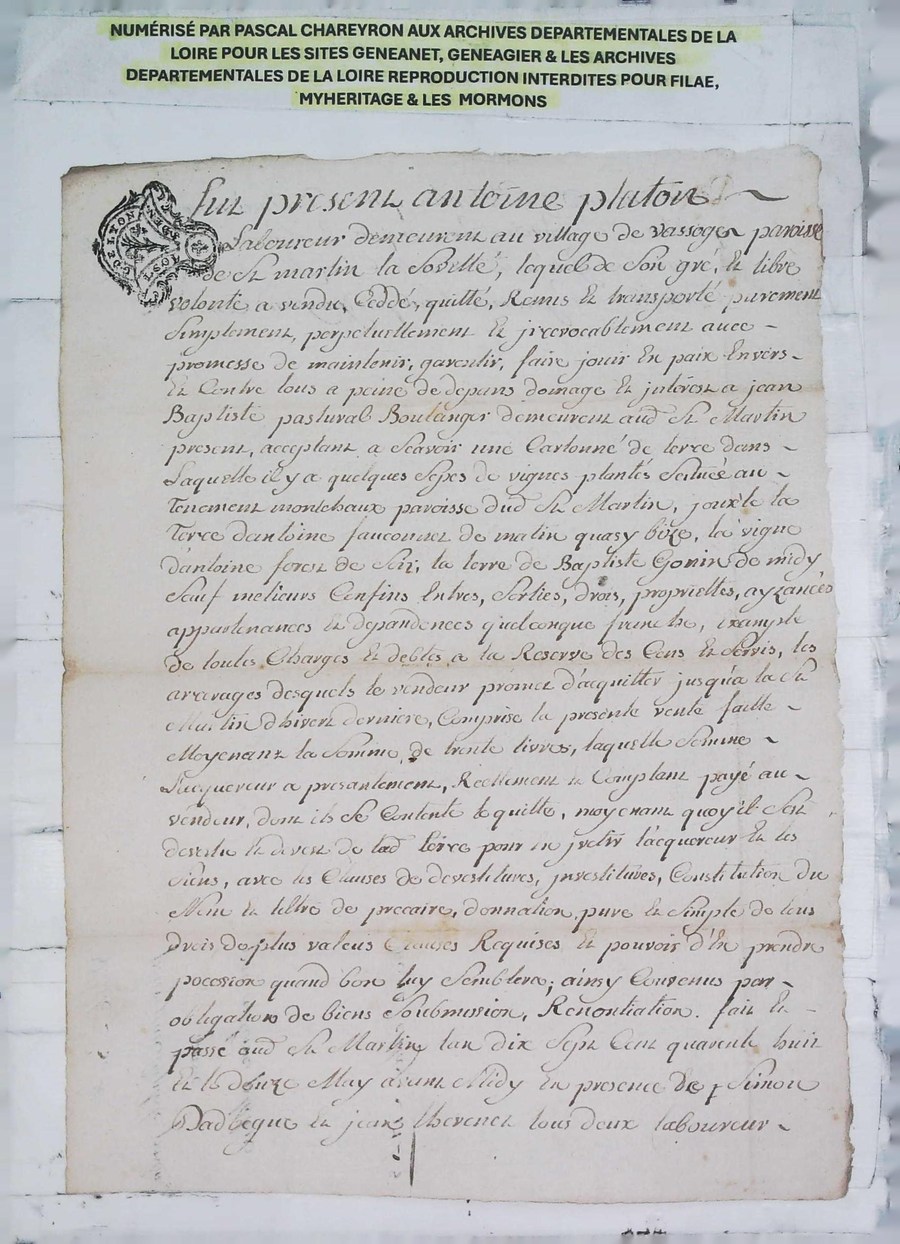 NUMÉRISÉ PAR PASCAL CHAREYRON AUX ARCHIVES DEPARTEMENTALES DE LA
LOIRE POUR LES SITES GENEANET, GENEAGIER & LES ARCHIVES
DEPARTEMENTALES DE LA LOIRE REPRODUCTION INTERDITES POUR FILAE,
MYHERITAGE & LES MORMONS
fut present antoine platon
Laboureur demeurent au village de vassoge paroisse
de St martin la Sovetté, lequel de Son gré, et libre
volonté a vendu, Ceddé, quitté, Remis et transporté purement
Simplement, perpetuellement et jrrevocablement avec
promesse de maintenir, garentir, faire jouir En paix Envers
Et Contre tous a peine de depans domage Et jnterest a jean
Baptiste pastural Boulanger demeurent aud St Martin
present, acceptant a Scavoir une Cartonné de terre dans
Laquelle il y a quelques Seps de vignes plantés Scituée au
Tenement montchaux paroisse dud St Martin, jouxte la
Terre dantoine fauconnet de matin quasy bize, la vigne
d'antoine forest de Soir, la terre de Baptiste Gonin de midy
Sauf melieurs Confins Entres, Sorties, drois, propriettes, ayzances
appartenances et dependences quelconque franche, exampte
De toutes Charges Et debtes a la Reserve des Cens Et Servis, les
arrerages desquels le vendeur promet d'acquitter jusqua la St
Martin d'hivert derniere, Comprise la presente vente faitte
Moyenant la Somme de trente livres, laquelle Somme
L'acquereur a presantement, Reellement et Comptant payé au
vendeur, dont il Se Contente le quitte, moyenant quoy il Sest
devestu et devest de lad terre pour en jvetir l'acquereur Et les
Siens, avec les Clauses de devestitures, jnvestitures, Constitution de
Nom et tiltre de precaire, donnation pure et Simple de tous
Drois de plus valeus Clauses Requises Et pouvoir d'En prendre
pocession quand bon luy Semblera; ainsy Convenus par
obligation de biens Soubmission, Renontiation. fait Et
passé aud St Martin lan dix Sept Cent quarente huit
Et le douze May avant Midy En presence de Simon
et jean thevenet tous deux laboureur